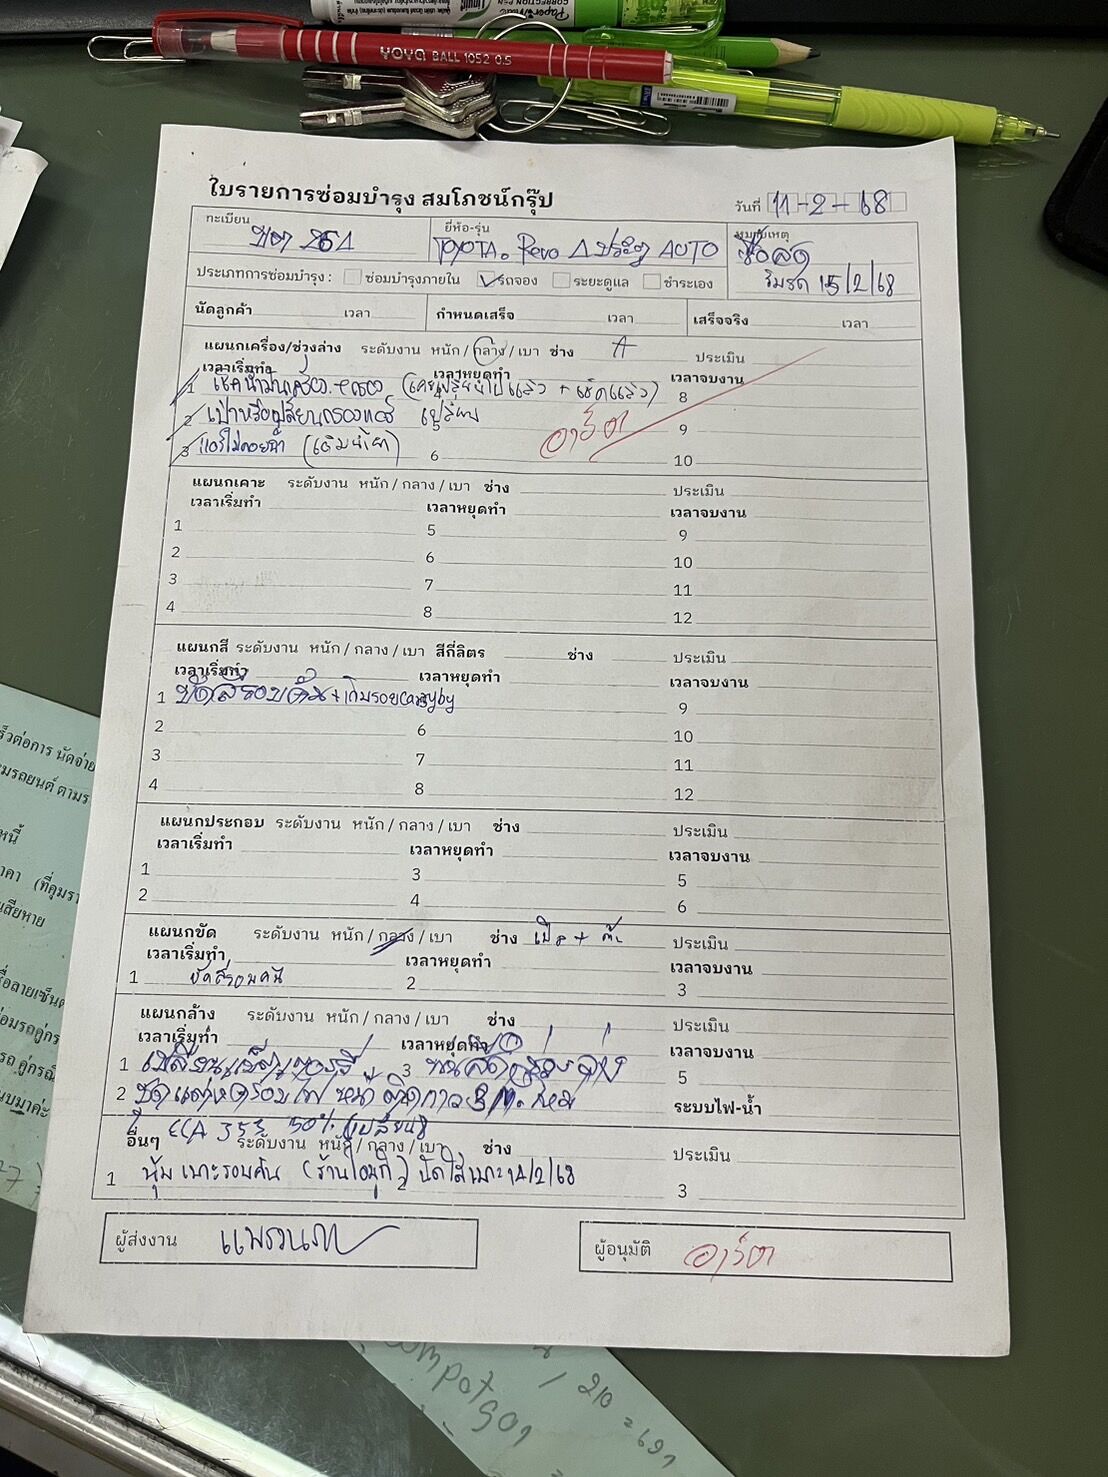 YOYA BALL 1052 0.5
ใบรายการซ่อมบำรุง สมโภชน์กรุ๊ป
วันที่ 11-2-68
ทะเบียน
ยี่ห้อ-รุ่น
หมายเหตุ
TOYOTA. Revo 4 ประตู AUTO
ซื้อสด
รับรถ 15/2/68
ประเภทการซ่อมบำรุง : ซ่อมบำรุงภายใน รถจอง ระยะดูแล ชำระเอง
นัดลูกค้า เวลา กำหนดเสร็จ เวลา เสร็จจริง เวลา
แผนกเครื่อง/ช่วงล่าง ระดับงาน หนัก / กลาง / เบา ช่าง A ประเมิน
เวลาเริ่มทำ เวลาหยุดทำ เวลาจบงาน
1 เช็คน้ำมันเครื่อง + กรอง (เคยเปลี่ยนไปแล้ว + เช็คแล้ว) 8
2 เป่าหรือเปลี่ยนกรองแอร์ เปลี่ยน 9
อาร์ต
3 แอร์ไม่ค่อยฉ่ำ (เติมน้ำยา) 6 10
แผนกเคาะ ระดับงาน หนัก / กลาง / เบา ช่าง ประเมิน
เวลาเริ่มทำ เวลาหยุดทำ เวลาจบงาน
1 5 9
2 6 10
3 7 11
4 8 12
แผนกสี ระดับงาน หนัก / กลาง / เบา สีกี่ลิตร ช่าง ประเมิน
เวลาเริ่มทำ เวลาหยุดทำ เวลาจบงาน
1 ขัดสีรอบคัน + เก็บรอย 9
2 6 10
3 7 11
4 8 12
แผนกประกอบ ระดับงาน หนัก / กลาง / เบา ช่าง ประเมิน
เวลาเริ่มทำ เวลาหยุดทำ เวลาจบงาน
1 3 5
2 4 6
แผนกขัด ระดับงาน หนัก / กลาง / เบา ช่าง ประเมิน
เวลาเริ่มทำ เวลาหยุดทำ เวลาจบงาน
1 ขัดสีรอบคัน 2 3
แผนกล้าง ระดับงาน หนัก / กลาง / เบา ช่าง ประเมิน
เวลาเริ่มทำ เวลาหยุดทำ เวลาจบงาน
1 เปลี่ยนแบตเตอรี่ 3 5
2 ระบบไฟ-น้ำ
CCA 355 50% (เปลี่ยน)
อื่นๆ ระดับงาน หนัก / กลาง / เบา ช่าง ประเมิน
1 หุ้มเบาะรอบคัน นัดใส่เบาะ 14/2/68 3
ผู้ส่งงาน
ผู้อนุมัติ อาร์ต